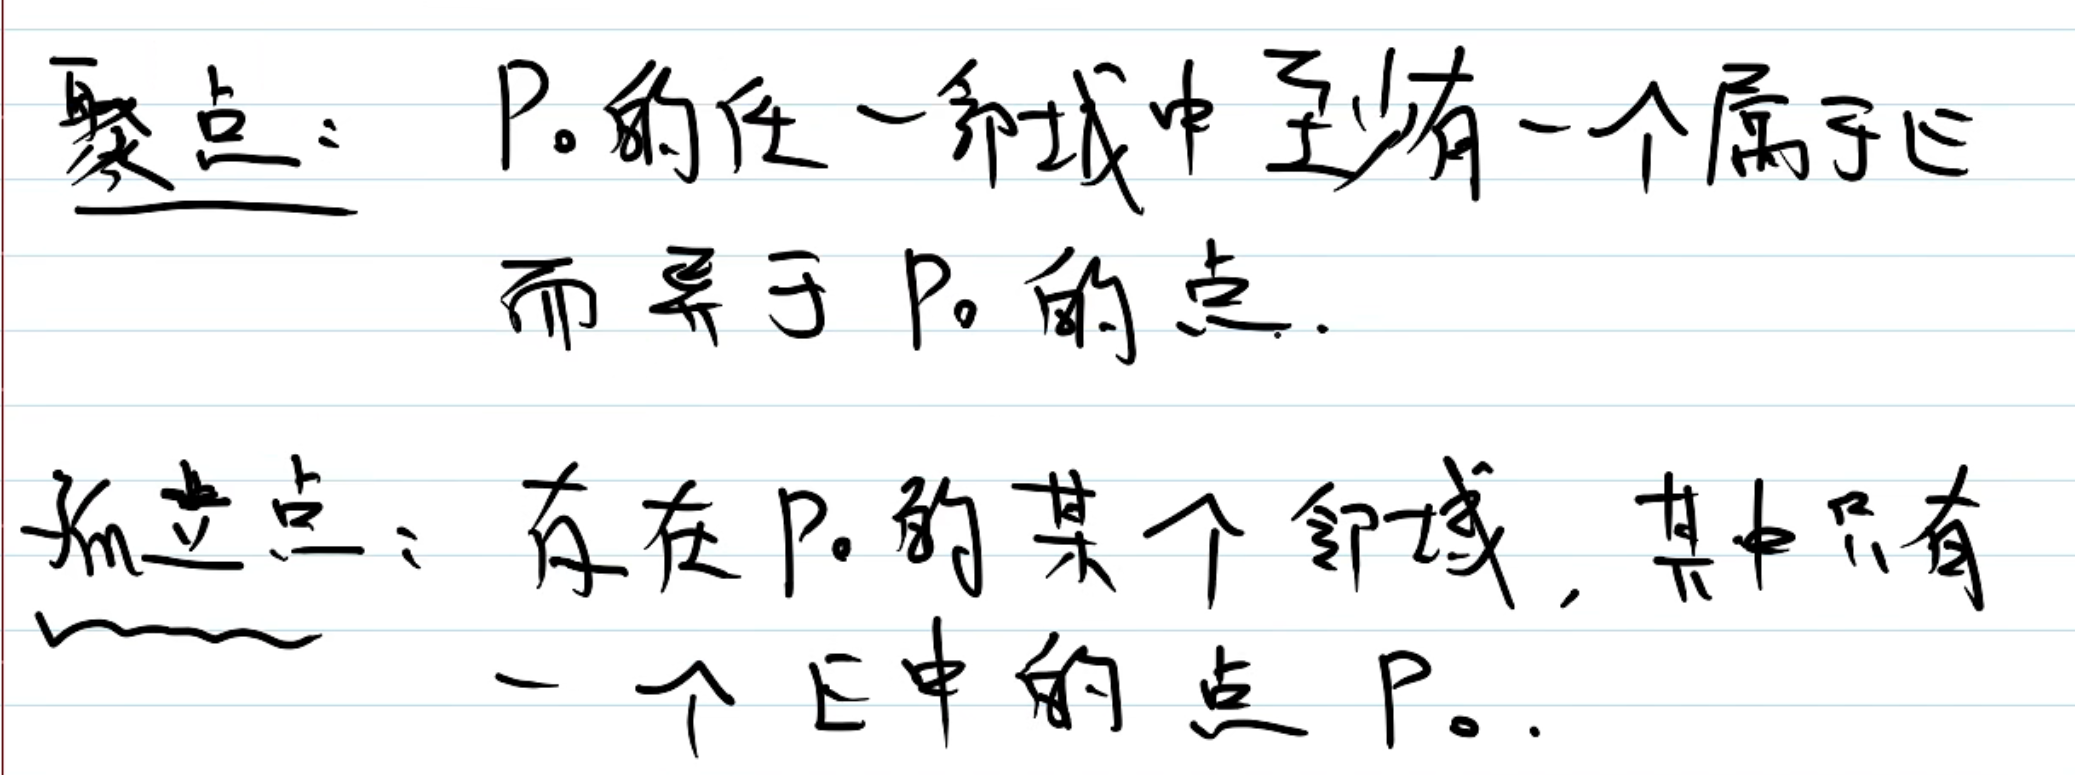 聚点： P₀的任一邻域中至少有一个属于E
而异于P₀的点.
孤立点： 存在P₀的某个邻域, 其中只有
一个E中的点P₀.